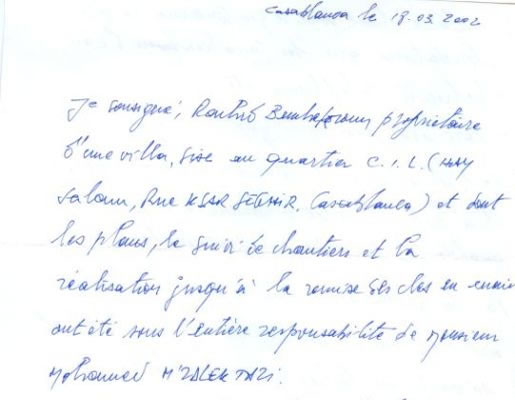 Casablanca le 18.03.2002
Je soussigné, propriétaire
d'une villa, sise au quartier C.I.L. (HAY
Salam, Rue KSAR Casablanca) et dont
les plans, le suivi de chantiers et la
réalisation jusqu'à la remise des clés en main
ont été sous l'entière responsabilité de Monsieur
Mohamed TAZI.